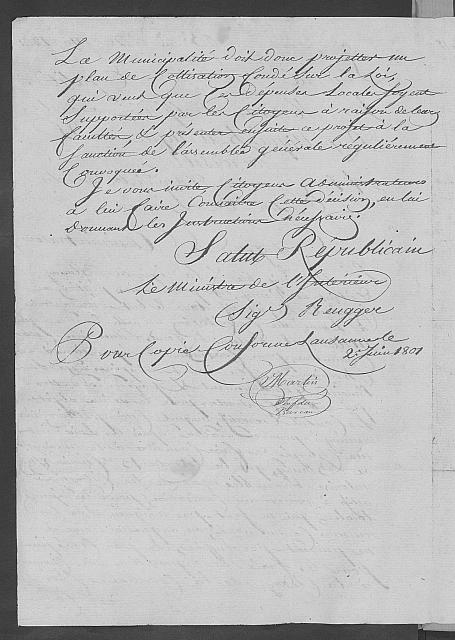 La Municipalité doit donc projetter un
plan de Cottisation fondé sur la Loi,
qui veut que les depenses Locales soyent
Supportées par les Citoyens à raison de leurs
facultés, & présenter ensuite ce projet à la
Sanction de l'assemblée générale régulierement
Convoquée.
Je vous invite Citoyens Administrateurs
à lui faire Connaitre Cette décision, en lui
donnant les Instructions nécessaires.
Salut Républicain
Le Ministre de l'Intérieur
Sig. Rengger
Pour Copie Conforme Lausanne le
2 Juin 1801
Martin
Chef de
Bureau